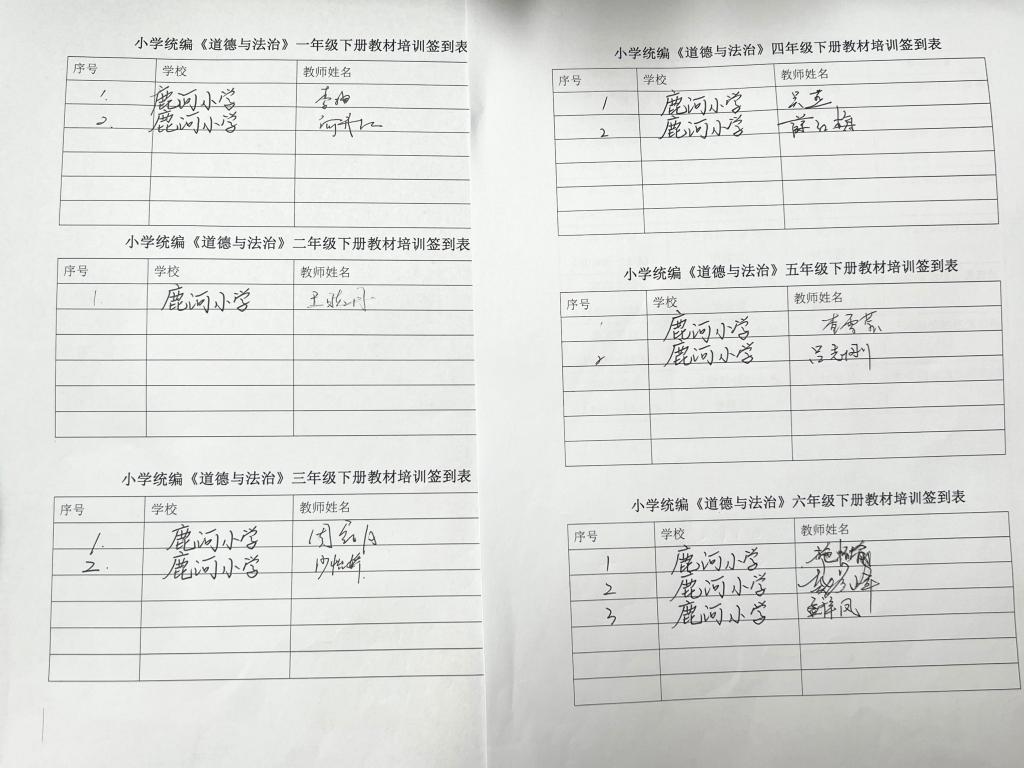 小学统编《道德与法治》一年级下册教材培训签到表
序号 学校 教师姓名
1. 鹿河小学
2. 鹿河小学
小学统编《道德与法治》二年级下册教材培训签到表
序号 学校 教师姓名
1. 鹿河小学
小学统编《道德与法治》三年级下册教材培训签到表
序号 学校 教师姓名
1. 鹿河小学
2. 鹿河小学
小学统编《道德与法治》四年级下册教材培训签到表
序号 学校 教师姓名
1 鹿河小学
2 鹿河小学 薛红梅
小学统编《道德与法治》五年级下册教材培训签到表
序号 学校 教师姓名
鹿河小学
2 鹿河小学 吕志刚
小学统编《道德与法治》六年级下册教材培训签到表
序号 学校 教师姓名
1 鹿河小学
2 鹿河小学
3 鹿河小学